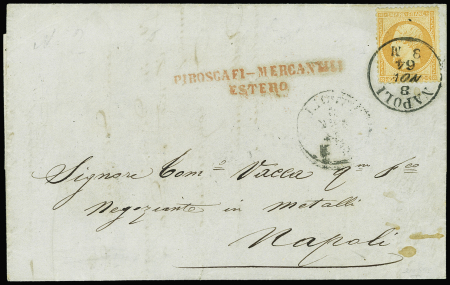 PIROSCAFI-MERCANTILI
ESTERO
NAPOLI
3
NOV
64
3 M
Signore Tom.º Vacca
Negoziante in metalli
Napoli